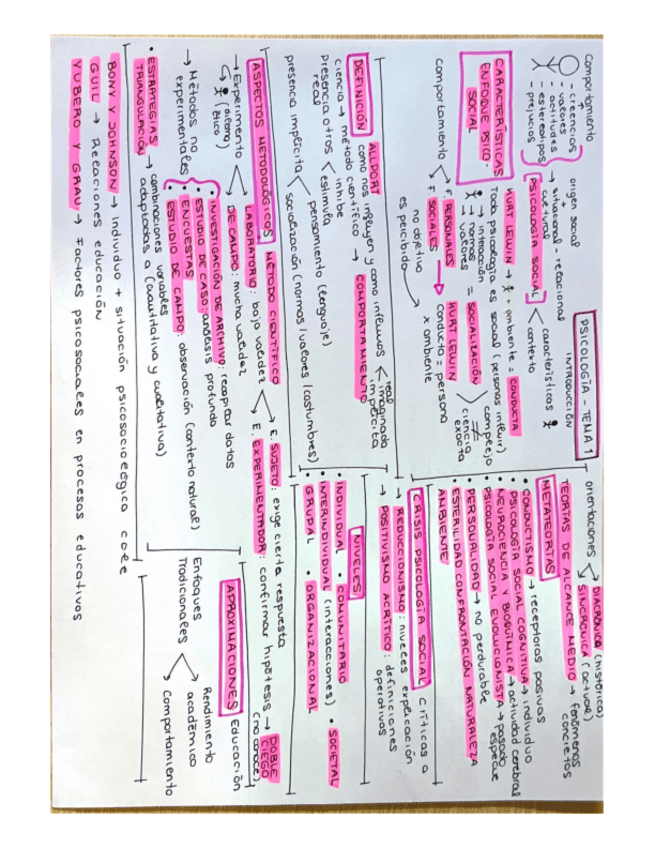 PSICOLOGÍA - TEMA 1
INTRODUCCIÓN
Comportamiento
- creencias
- valores
- actitudes
- estereotipos
- prejuicios
origen social
+
situacional - relacional
culturas
PSICOLOGÍA SOCIAL
características
contexto
CARACTERÍSTICAS
ENFOQUE PSICO-
SOCIAL
KURT LEWIN → + ambiente = CONDUCTA
Toda psicología es social (personas influir)
→ interacción
→ normas
→ valores
= SOCIALIZACIÓN
complejo
≠
ciencia
exacta
comportamiento
F. PERSONALES
F. SOCIALES
KURT LEWIN
conducta = persona
x ambiente
no objetivo
es percibido
DEFINICIÓN
ALLPORT
como nos influyen y como influimos
real
imaginada
implícita
ciencia → método científico → COMPORTAMIENTO
presencia otros
real
estimula
inhibe
pensamiento (lenguaje)
presencia implícita
socialización (normas/valores/costumbres)
ASPECTOS METODOLÓGICOS
MÉTODO CIENTÍFICO
→ Experimento
LABORATORIO: baja validez
DE CAMPO: mucha validez
E. SUJETO: exige cierta respuesta
E. EXPERIMENTADOR: confirmar hipótesis → DOBLE
CIEGO
(no conoce)
(dilema)
ético
→ Métodos no
experimentales
• INVESTIGACIÓN DE ARCHIVO: recopilar datos
• ESTUDIO DE CASO: análisis profundo
• ENCUESTAS
• ESTUDIO DE CAMPO: observación (contexto natural)
• ESTRATEGIAS
TRIANGULACIÓN
→ combinaciones variables
adaptadas a (cuantitativa y cualitativa)
BONY Y JOHNSON → individuo + situación psicosociológica cole
GUIL → Relaciones educación
YUBERO Y GRAU → Factores psicosociales en procesos educativos
orientaciones
DIACRÓNICA (histórica)
SINCRÓNICA (actual)
TEORÍAS DE ALCANCE MEDIO → fenómenos
concretos
METATEORÍAS
• CONDUCTISMO → receptoras pasivas
• PSICOLOGÍA SOCIAL COGNITIVA → individuo
• NEUROCIENCIA Y BIOQUÍMICA → actividad cerebral
• PSICOLOGÍA SOCIAL EVOLUCIONISTA → pasado
especie
• PERSONALIDAD → no perdurable
• ESTERILIDAD CONFRONTACIÓN NATURALEZA
AMBIENTE
CRISIS PSICOLOGÍA SOCIAL
críticas a
→ REDUCCIONISMO: niveles explicación
→ POSITIVISMO ACRÍTICO: definiciones
operativas
NIVELES
• INDIVIDUAL • COMUNITARIO
• INTERINDIVIDUAL (interacciones) • SOCIETAL
• GRUPAL • ORGANIZACIONAL
APROXIMACIONES EDUCACIÓN
Enfoques
Tradicionales
Rendimiento
académico
Comportamiento